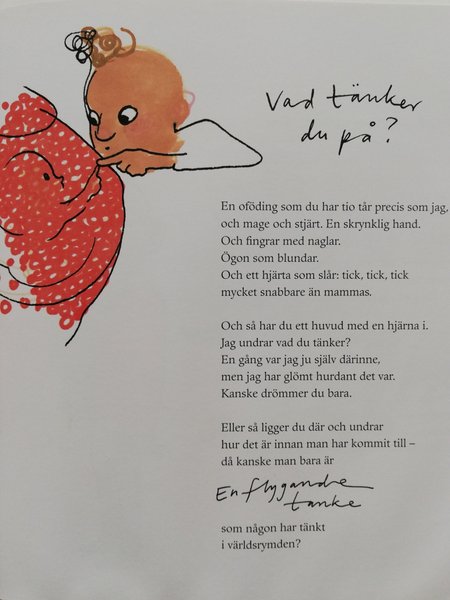 Vad tänker
du på?
En oföding som du har tio tår precis som jag,
och mage och stjärt. En skrynklig hand.
Och fingrar med naglar.
Ögon som blundar.
Och ett hjärta som slår: tick, tick, tick
mycket snabbare än mammas.
Och så har du ett huvud med en hjärna i.
Jag undrar vad du tänker?
En gång var jag ju själv därinne,
men jag har glömt hurdant det var.
Kanske drömmer du bara.
Eller så ligger du där och undrar
hur det är innan man har kommit till –
då kanske man bara är
En flygande
tanke
som någon har tänkt
i världsrymden?